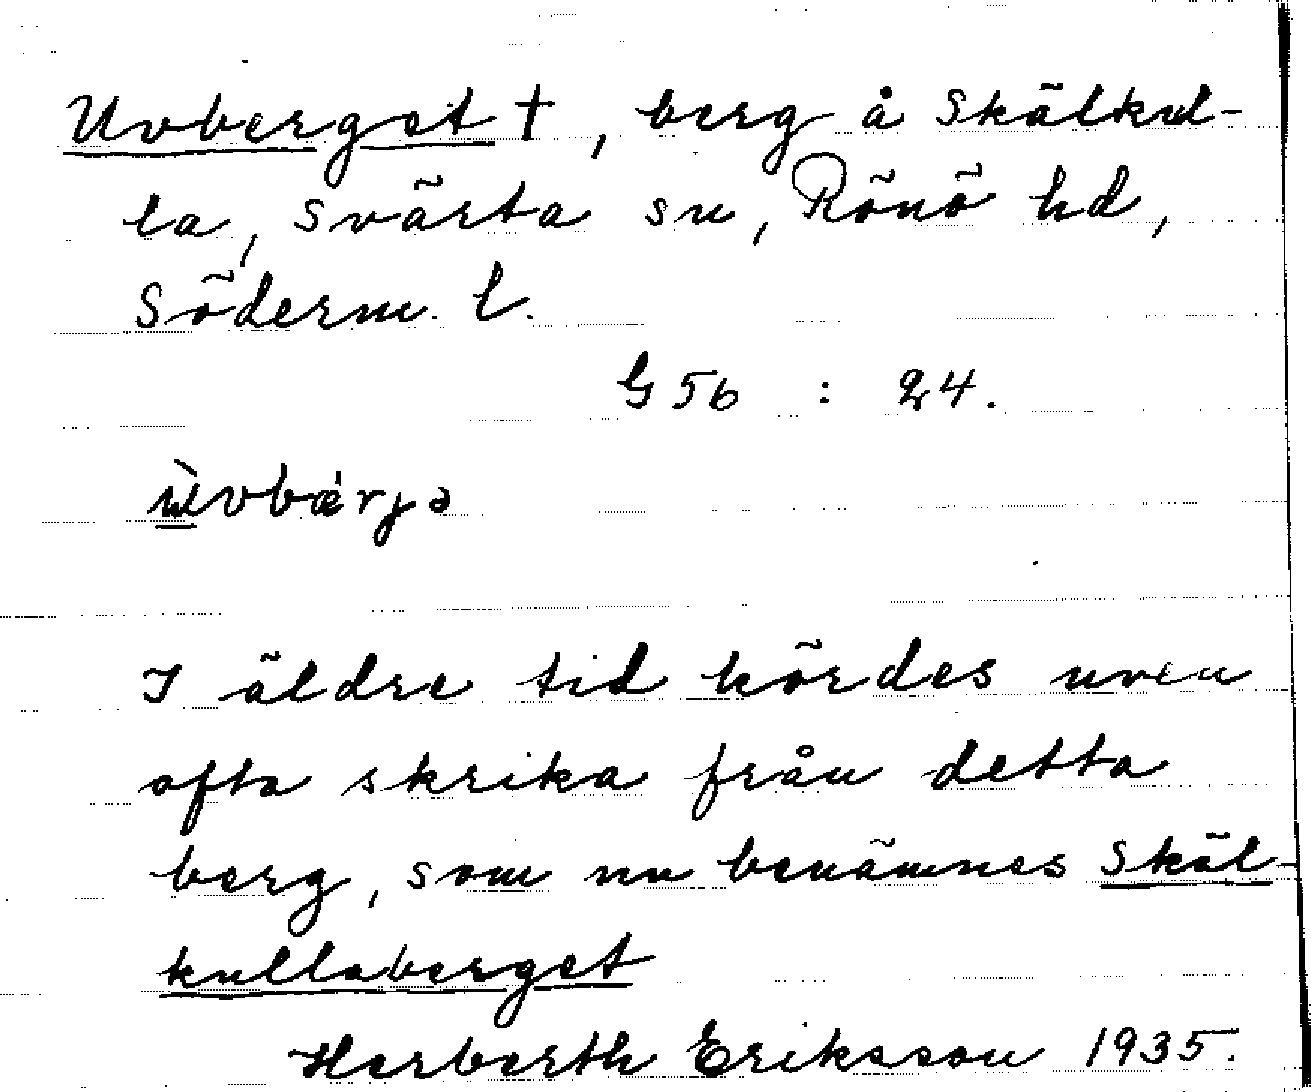 Uvberget †, berg å Skälkul-
la, Svärta sn, Rönö hd,
Söderm. l.
G56 : 24.
ùvbærjə
I äldre tid hördes uven
ofta skrika från detta
berg, som nu benämnes Skäl-
kullaberget
Herberth Eriksson 1935.